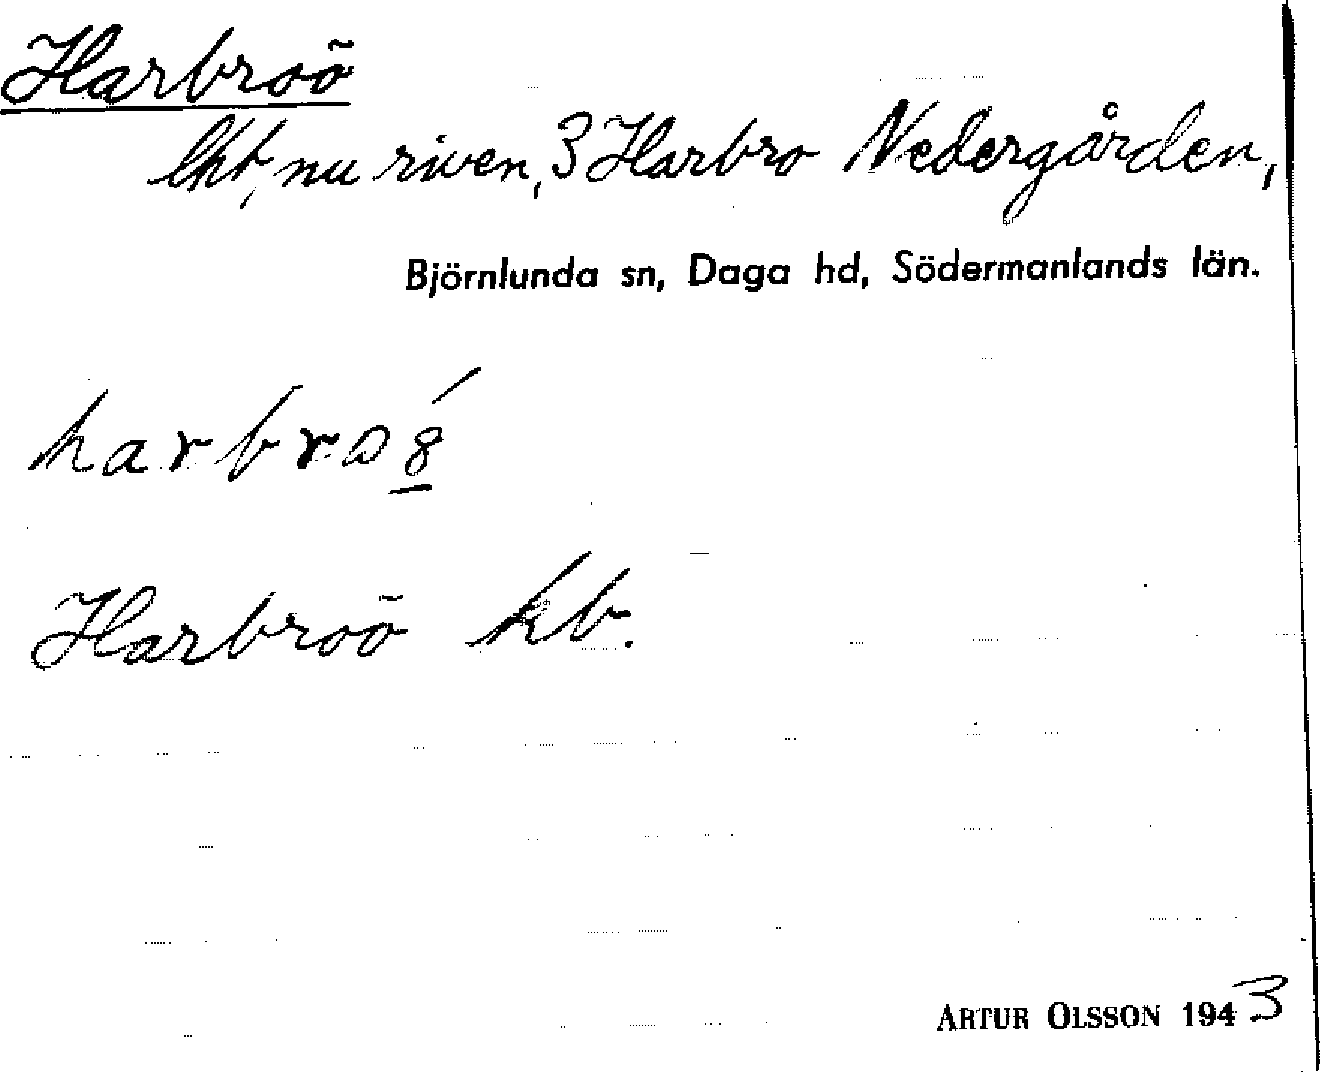 Harbroö
lht, nu riven, 3 Harbro Nedergården,
Björnlunda sn, Daga hd, Södermanlands län.
harbro8́
Harbroö kb.
ARTUR OLSSON 1943